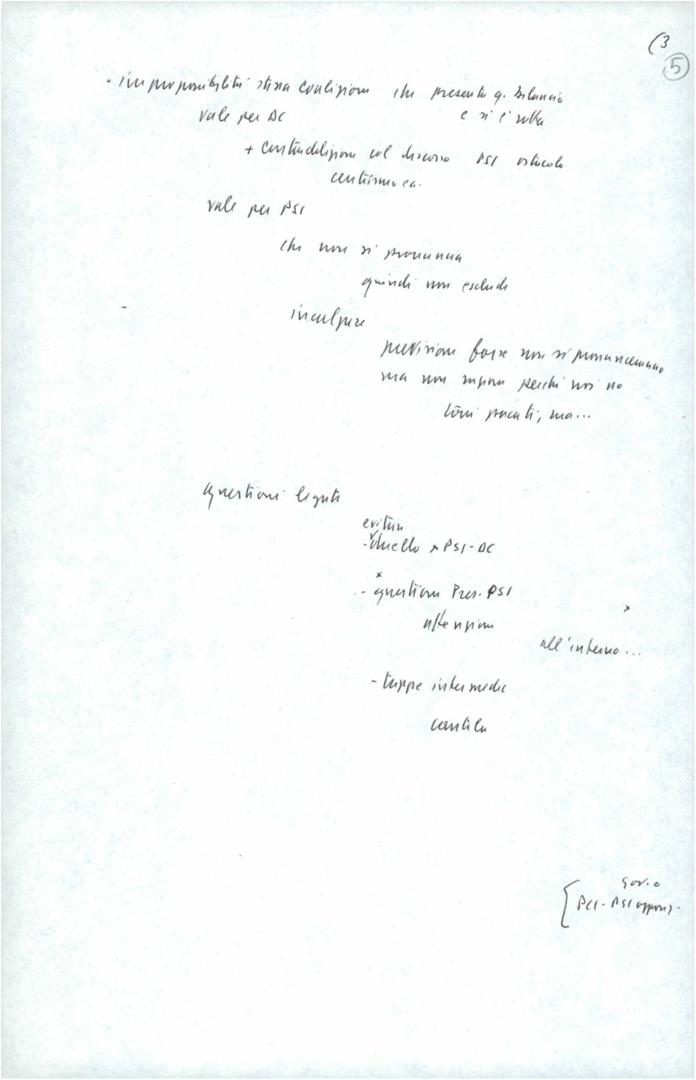 (3
5
- improponibilità stessa coalizione che presenta q. bilancio
vale per DC e si è rotta
+ contraddizione col discorso PSI ostacolo
vale per PSI
che non si pronuncia
quindi non esclude
incalzare
previsione forse non si pronunceranno
ma non importa perché noi no
toni pacati, ma...
questioni legate
evitare
- duello x PSI-DC
x
- questione Pres. PSI
attenzione
all'interno...
- tappe intermedie
cautela
gov.o
[ PCI-PSI oppos.